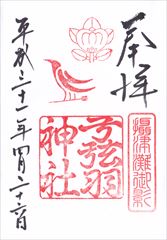 奉拝
攝津灘御影
弓弦羽
神社
平成二十一年四月二十六日